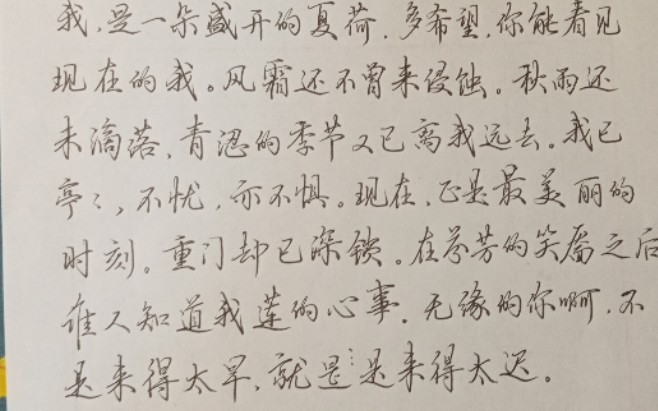 我,是一朵盛开的夏荷.多希望,你能看见
现在的我。风霜还不曾来侵蚀。秋雨还
未滴落,青涩的季节又已离我远去。我已
亭〻,不忧,亦不惧。现在,正是最美丽的
时刻。重门却已深锁。在芬芳的笑靥之后
谁人知道我莲的心事.无缘的你啊,不
是来得太早,就是是来得太迟。